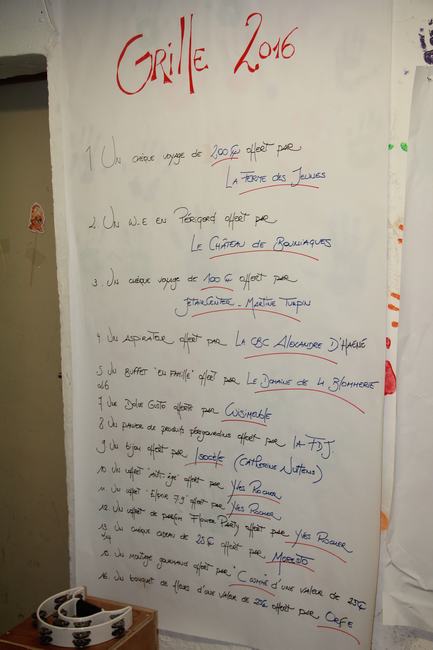 Grille 2016
1 Un chèque voyage de 200 € offert par
La Ferme des Jeunes
2. Un W-E en Périgord offert par
Le Château de Bouniagues
3. Un chèque voyage de 100 € offert par
JetairCenter - Martine Turpin
4. Un aspirateur offert par La CBC Alexandre D'Haene
5. Un buffet "en famille" offert par Le Domaine de la Blommerie
7 Une Dolce Gusto offerte par Cuisimeuble
8 Un panier de produits périgourdins offert par la FDJ.
9 Un bijou offert par Isocèle (Catherine Nuttens)
10. Un coffret "Anti-âge" offert par Yves Rocher
11. Un coffret "Elixir 7.9" offert par Yves Rocher
12. Un coffret de parfum Flower Party offert par Yves Rocher
13. Un chèque cadeau de 25€ offert par
15. Un montage gourmand offert par d'une valeur de 25€
16. Un bouquet de fleurs d'une valeur de 25€ offert par